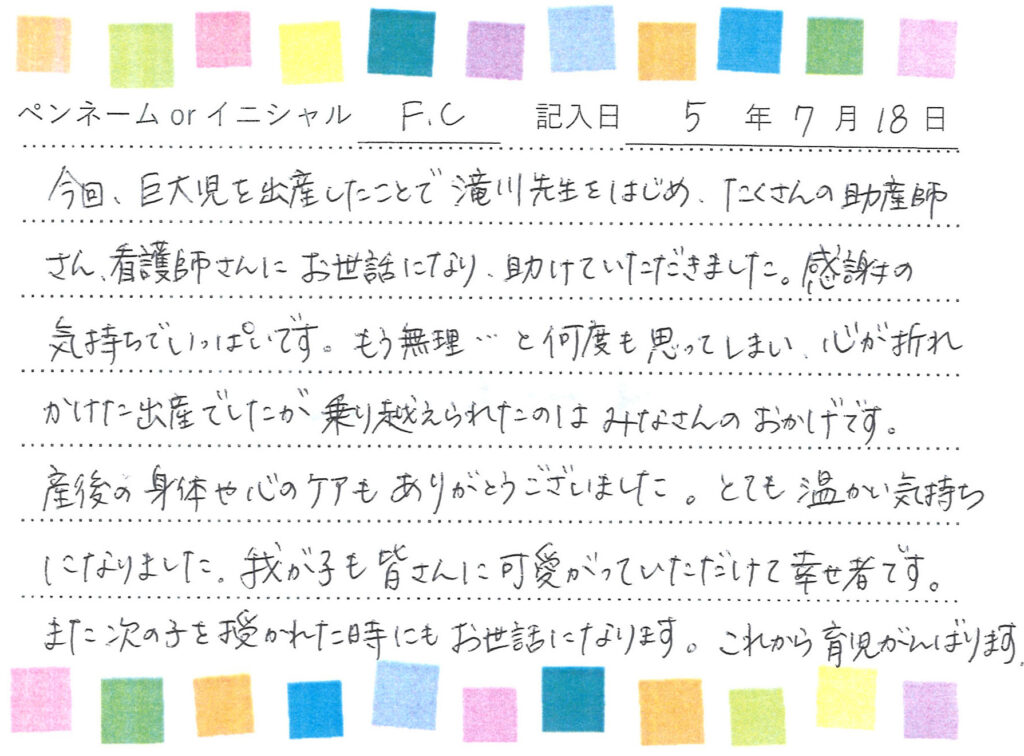 ペンネーム or イニシャル F.C 記入日 5 年 7 月 18 日
今回、巨大児を出産したことで滝川先生をはじめ、たくさんの助産師
さん、看護師さんにお世話になり、助けていただきました。感謝の
気持ちでいっぱいです。もう無理…と何度も思ってしまい、心が折れ
かけた出産でしたが乗り越えられたのはみなさんのおかげです。
産後の身体や心のケアもありがとうございました。とても温かい気持ち
になりました。我が子も皆さんに可愛がっていただけて幸せ者です。
また次の子を授かれた時にもお世話になります。これから育児がんばります。